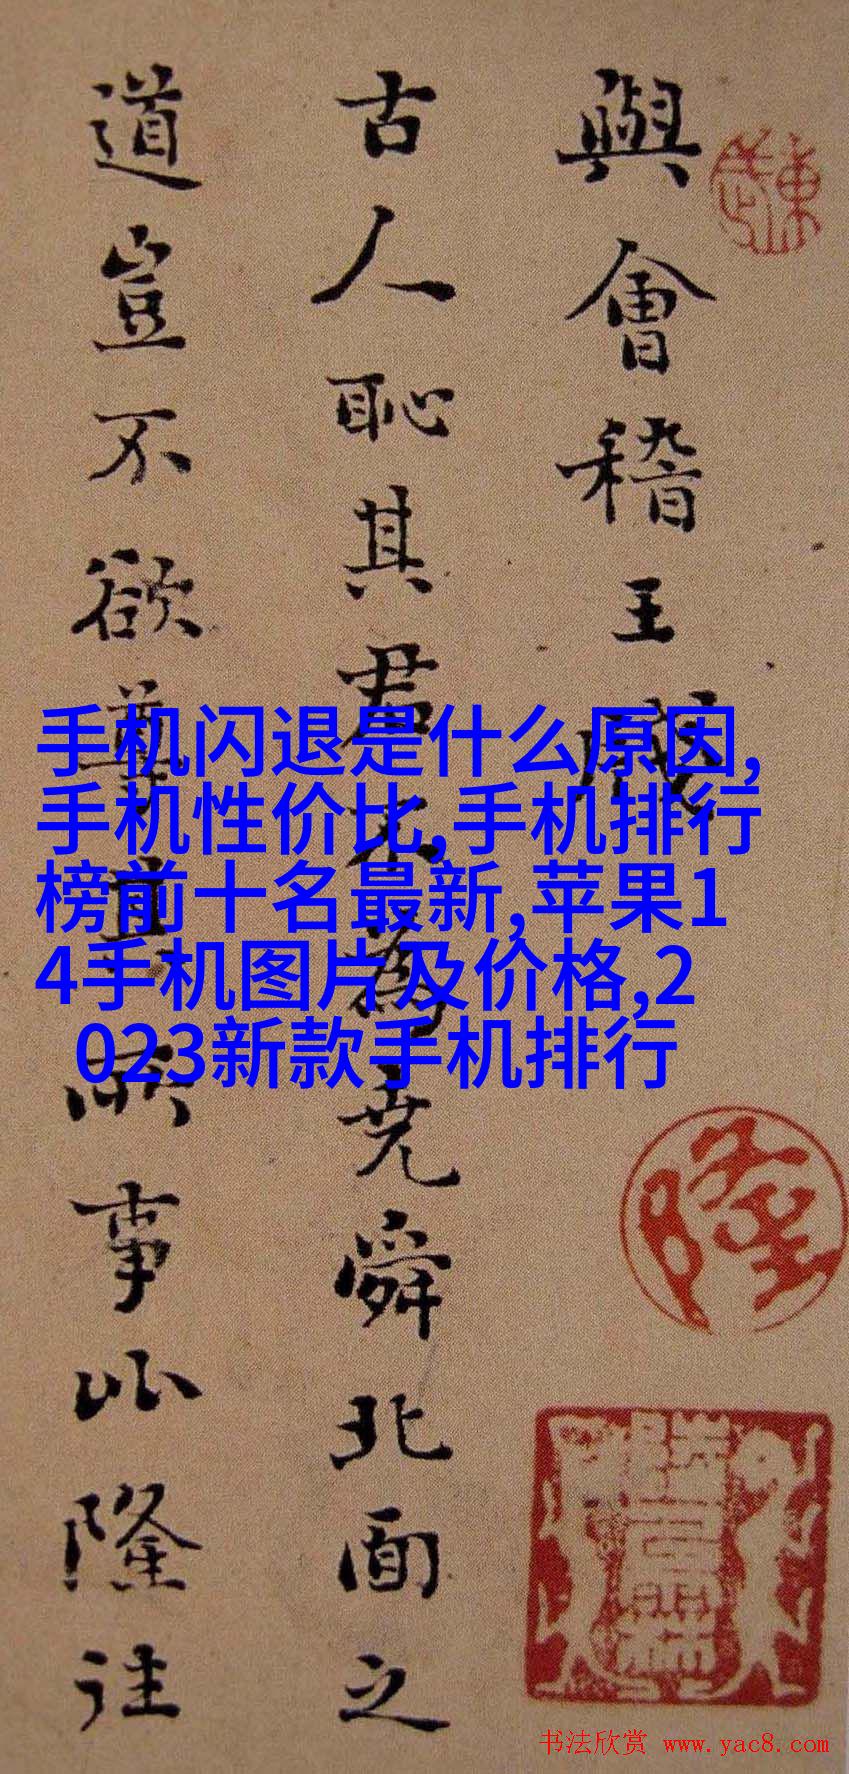 與會稽王牋
古人恥其君不為堯舜北面之
道豈不欲尊其所事比隆往
手机闪退是什么原因,
手机性价比,手机排行
榜前十名最新,苹果1
4手机图片及价格,2
023新款手机排行
隆
书法欣赏 www.yac8.com